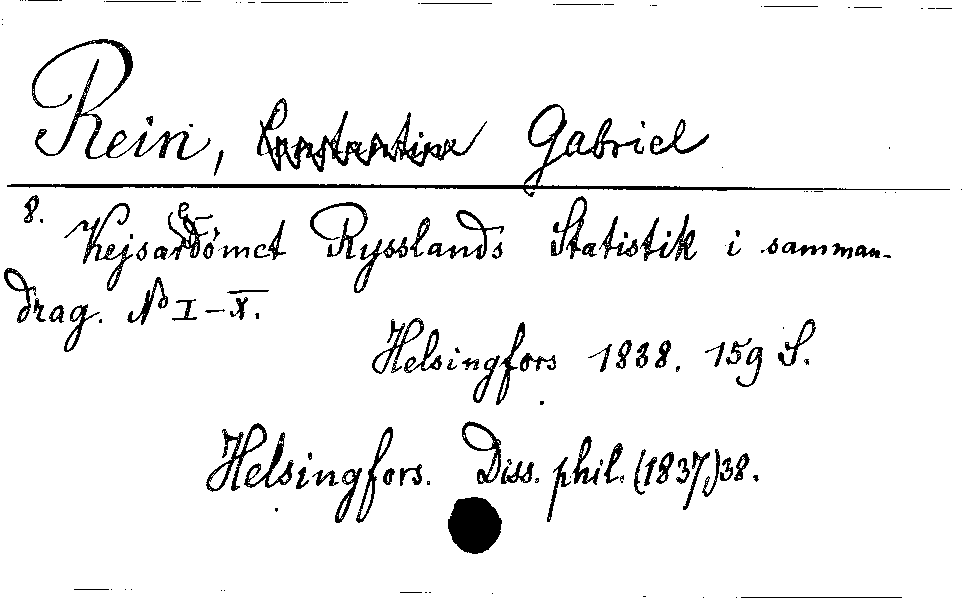 Rein, Constantine Gabriel
8.
Kejsaredömet Rysslands Statistik i samman-
drag. No I-X.
Helsingfors 1838. 159 S.
Helsingfors. Diss. phil. (1837,)38.